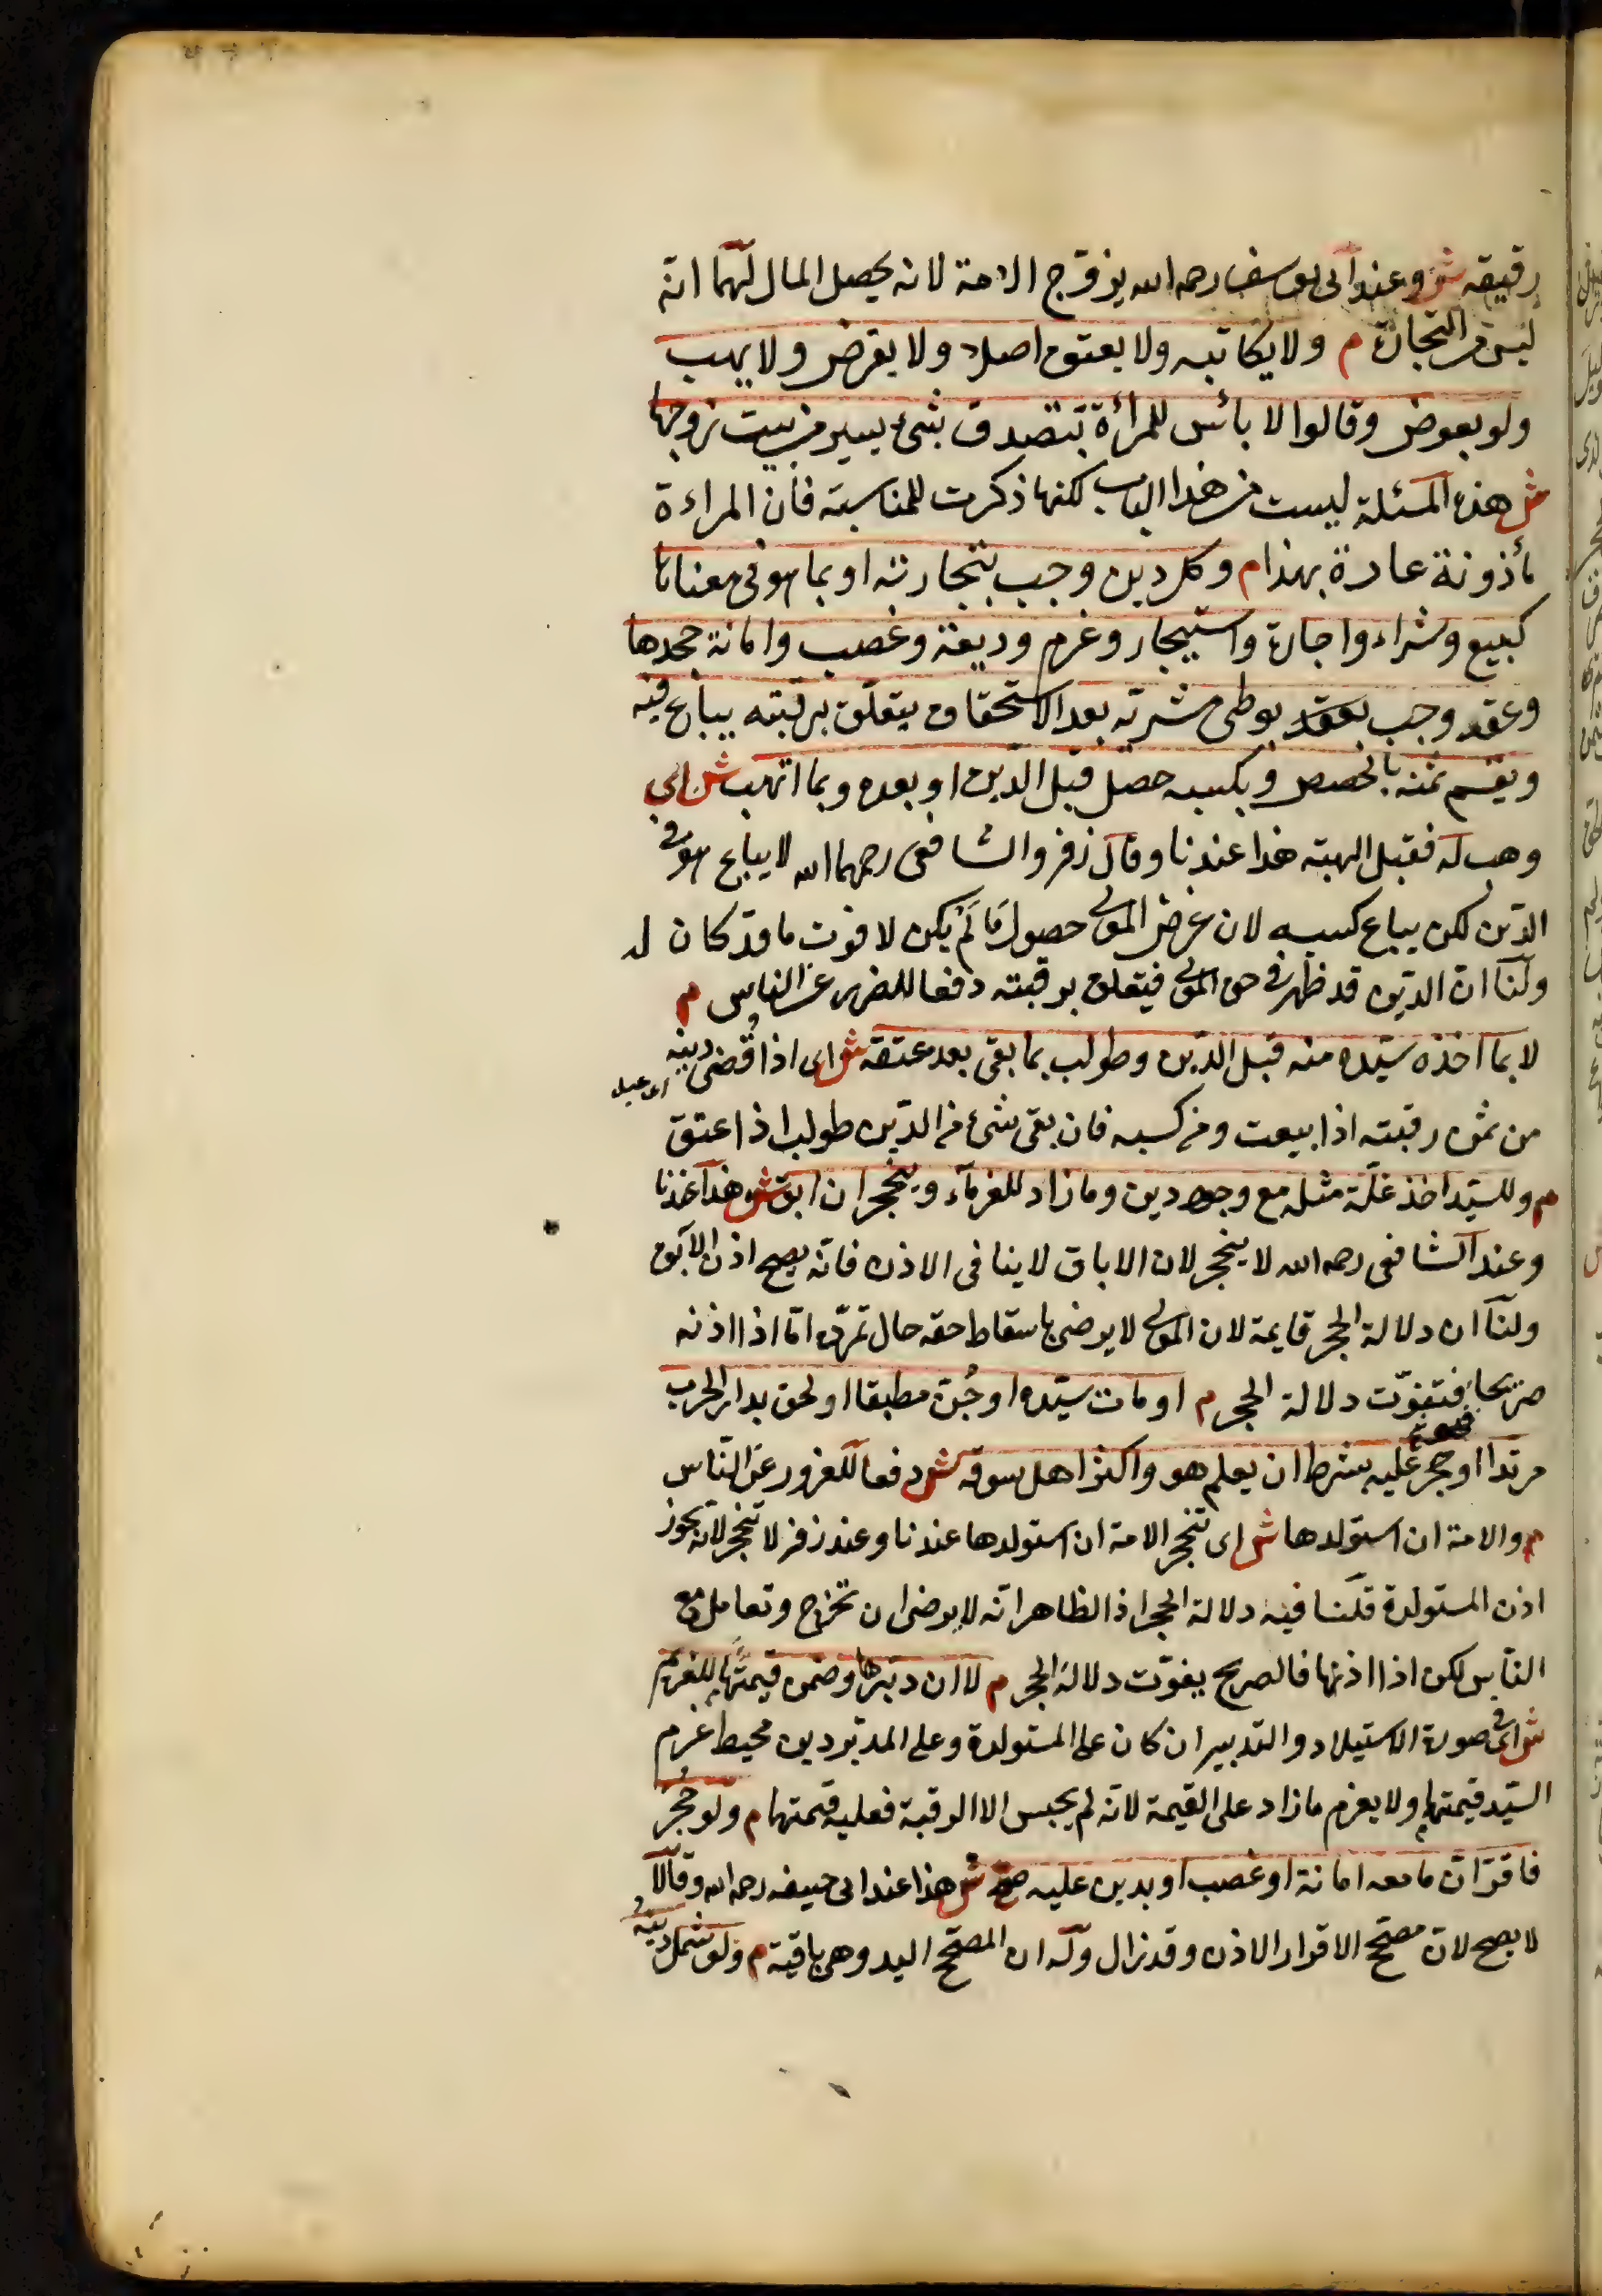 رقيقه ش وعند ابى يوسف رحمه الله يزوّج الامة لانه يحصل المال لهما انّه
ليس من التجارة م ولا يكاتبه ولا يعتق اصلا ولا يقرض ولا يهب
ولو بعوض وقالوا لا بائس للمرأة بتصدق بشئ يسير من بيت زوجها
ش هذه المسئلة ليست من هذا الباب لكنها ذكرت للمناسبة فان المراءة
مأذونة عادة بهذا م وكل دين وجب بتجارته او بما هو فى معناها
كبيع وشراء واجارة واستيجار وغرم وديعة وغصب وامانة جحدها
وعقر وجب بعقد بوطئ مشرته بعد الاستحقاق يتعلّق برقبته يباع فيه
ويقسم ثمنه بالحصص وبكسبه حصل قبل الدّين او بعده وبما اتهب ش اى
وهب له فقبل الهبة هذا عندنا وقال زفر والشافعى رحمهما الله لا يباع هو فى
الدّين لكن يباع كسبه لان غرض المولى حصول ما لم يكن لا فوت ما قد كان له
ولنا ان الدّين قد ظهر فى حق المولى فيتعلق برقبته دفعا للضرر عن الناس م
لا بما اخذه سيّده منه قبل الدّين وطولب بما بقى بعد عتقه ش اى اذا قُضى دينه
اى عبد
من ثمن رقبته اذا بيعت ومن كسبه فان بقى شئ من الدّين طولب اذا عتق
م وللسيّد اخذ غلّة مثله مع وجود دين وما زاد للغرماء وينحجر ان ابق ش هذا عندنا
وعند الشافعى رحمه الله لا ينحجر لان الاباق لا ينافى الاذن فانّه يصح اذن الآبق
ولنا ان دلالة الحجر قايمة لان المولى لا يرضى باسقاط حقه حال تمرّده امّا اذا اذنه
صريحا فتفوّت دلالة الحجر م او مات سيّده او جُنّ مطبقا او لحق بدار الحرب
مرتدا او حجر عليه بشرط ان يعلم هو واكثر اهل سوقه ش دفعا للغرور عن النّاس
م والامة ان استولدها ش اى تنحجر الامة ان استولدها عندنا وعند زفر لا تنحجر لانه يجوز
اذن المستولدة قلنا فيه دلالة الحجر اذ الظاهر انّه لا يرضى ان تخرج وتعامل مع
النّاس لكن اذا اذنها فالصريح يفوّت دلالة الحجر م لا ان دبّرها وضمن قيمتها للغريم
ش اى فى صورة الاستيلاد والتدبير ان كان على المستولدة وعلى المدبّر دين محيط غرم
السّيّد قيمتها ولا يغرم ما زاد على القيمة لانّه لم يحبس الا الرقبة فعليه قيمتها م ولو حُجر
فاقرّ انّ ما معه امانة او غصب او بدين عليه صح ش هذا عند ابى حنيفه رحمه الله وقالا
لا يصح لانّ مصحّح الاقرار الاذن وقد زال وله ان المصحّح اليد وهى باقية م ولو شمل دينه